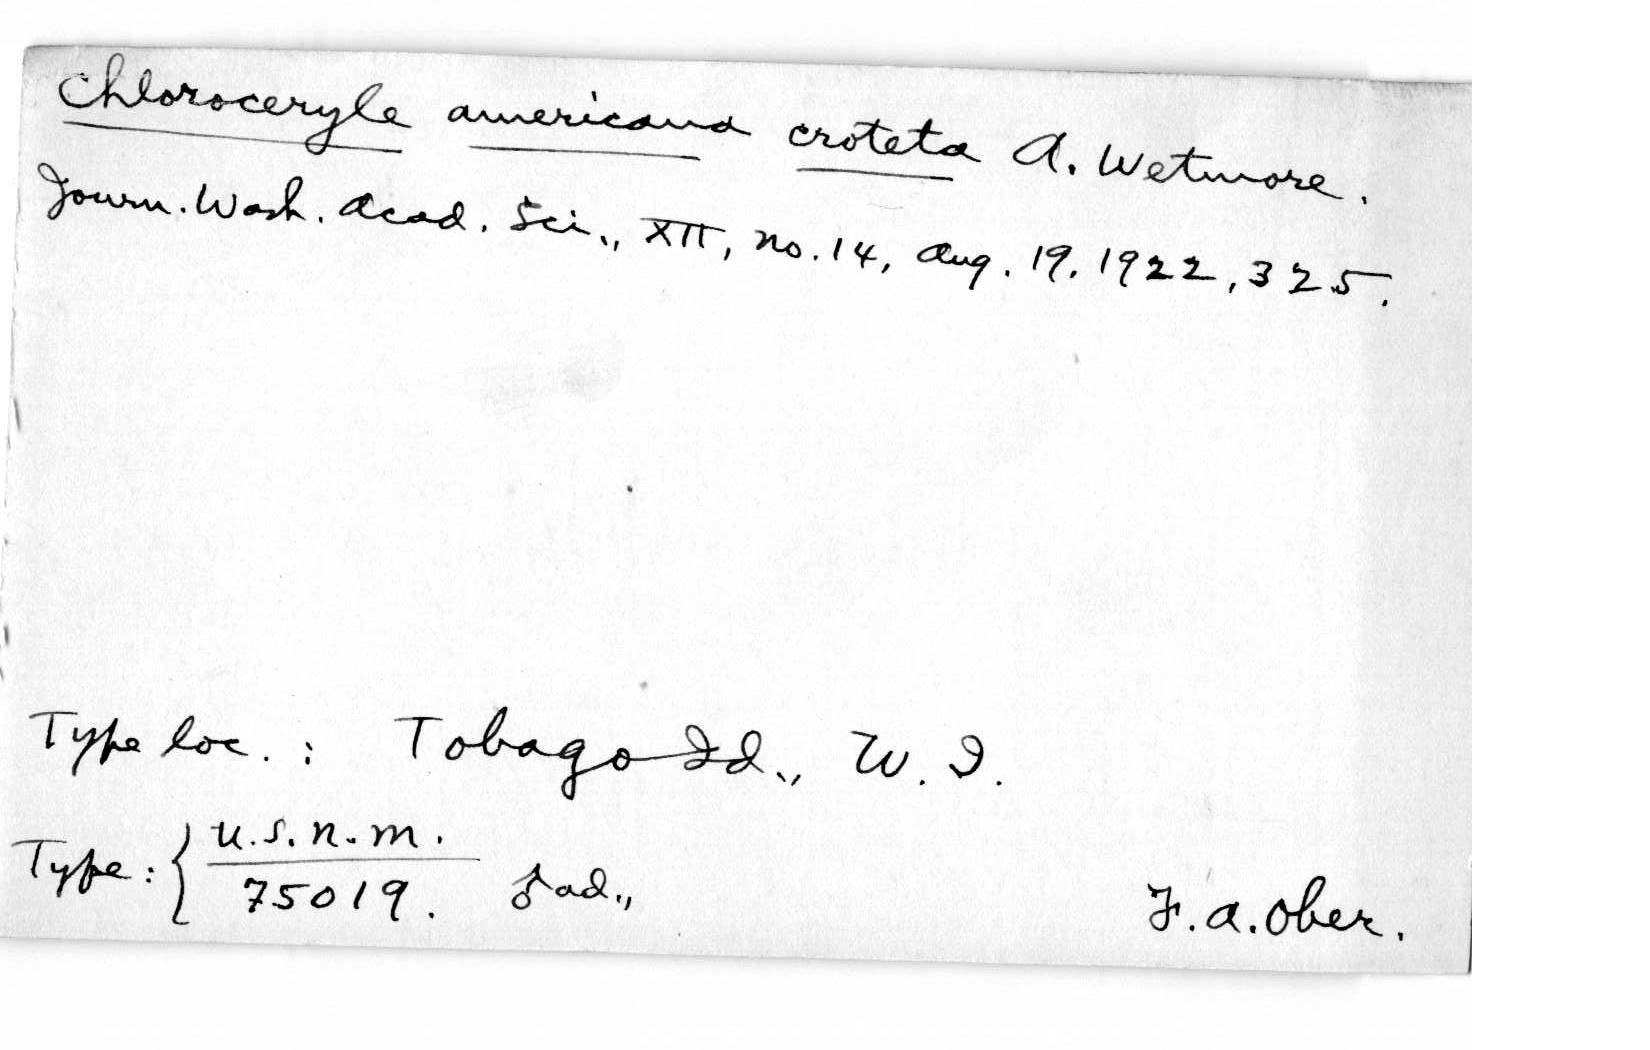 Chloroceryle americana croteta A. Wetmore.
Journ. Wash. Acad. Sci., XII, no. 14, Aug. 19, 1922, 325.
Type loc.: Tobago Id., W. I.
Type: { U.S.N.M. 75019. ♂ ad., F. A. Ober.